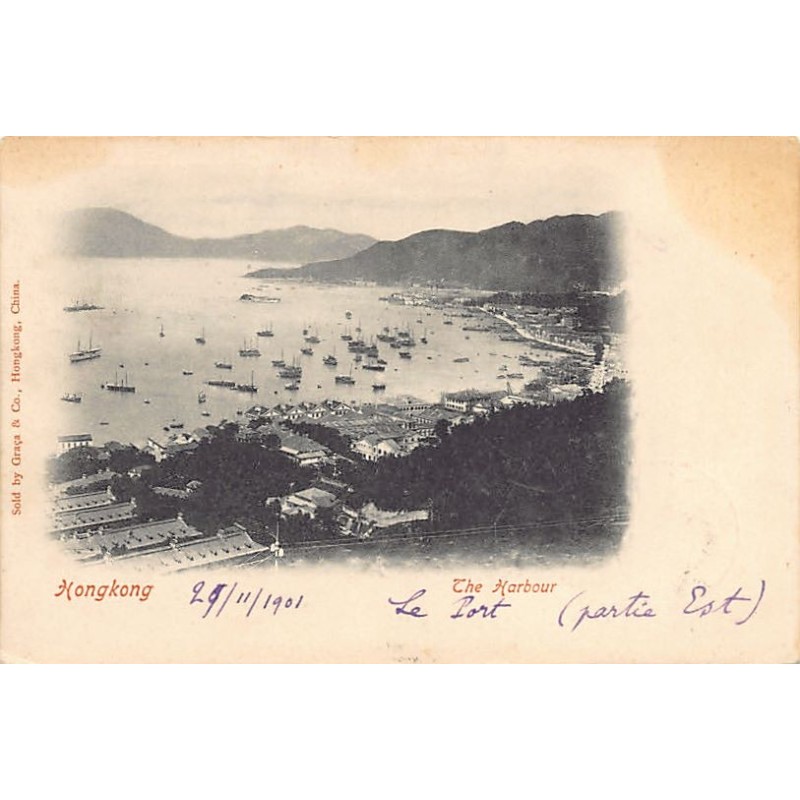 Sold by Graça & Co., Hongkong, China.
Hongkong 29/11/1901 The Harbour
Le Port (partie Est)